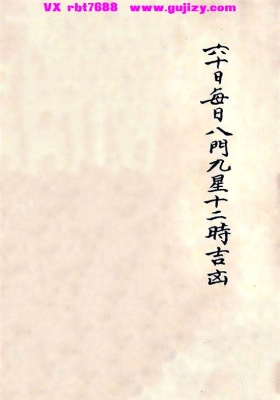 VX rbt7688 www.gujizy.com
六十日每日八門九星十二時吉凶